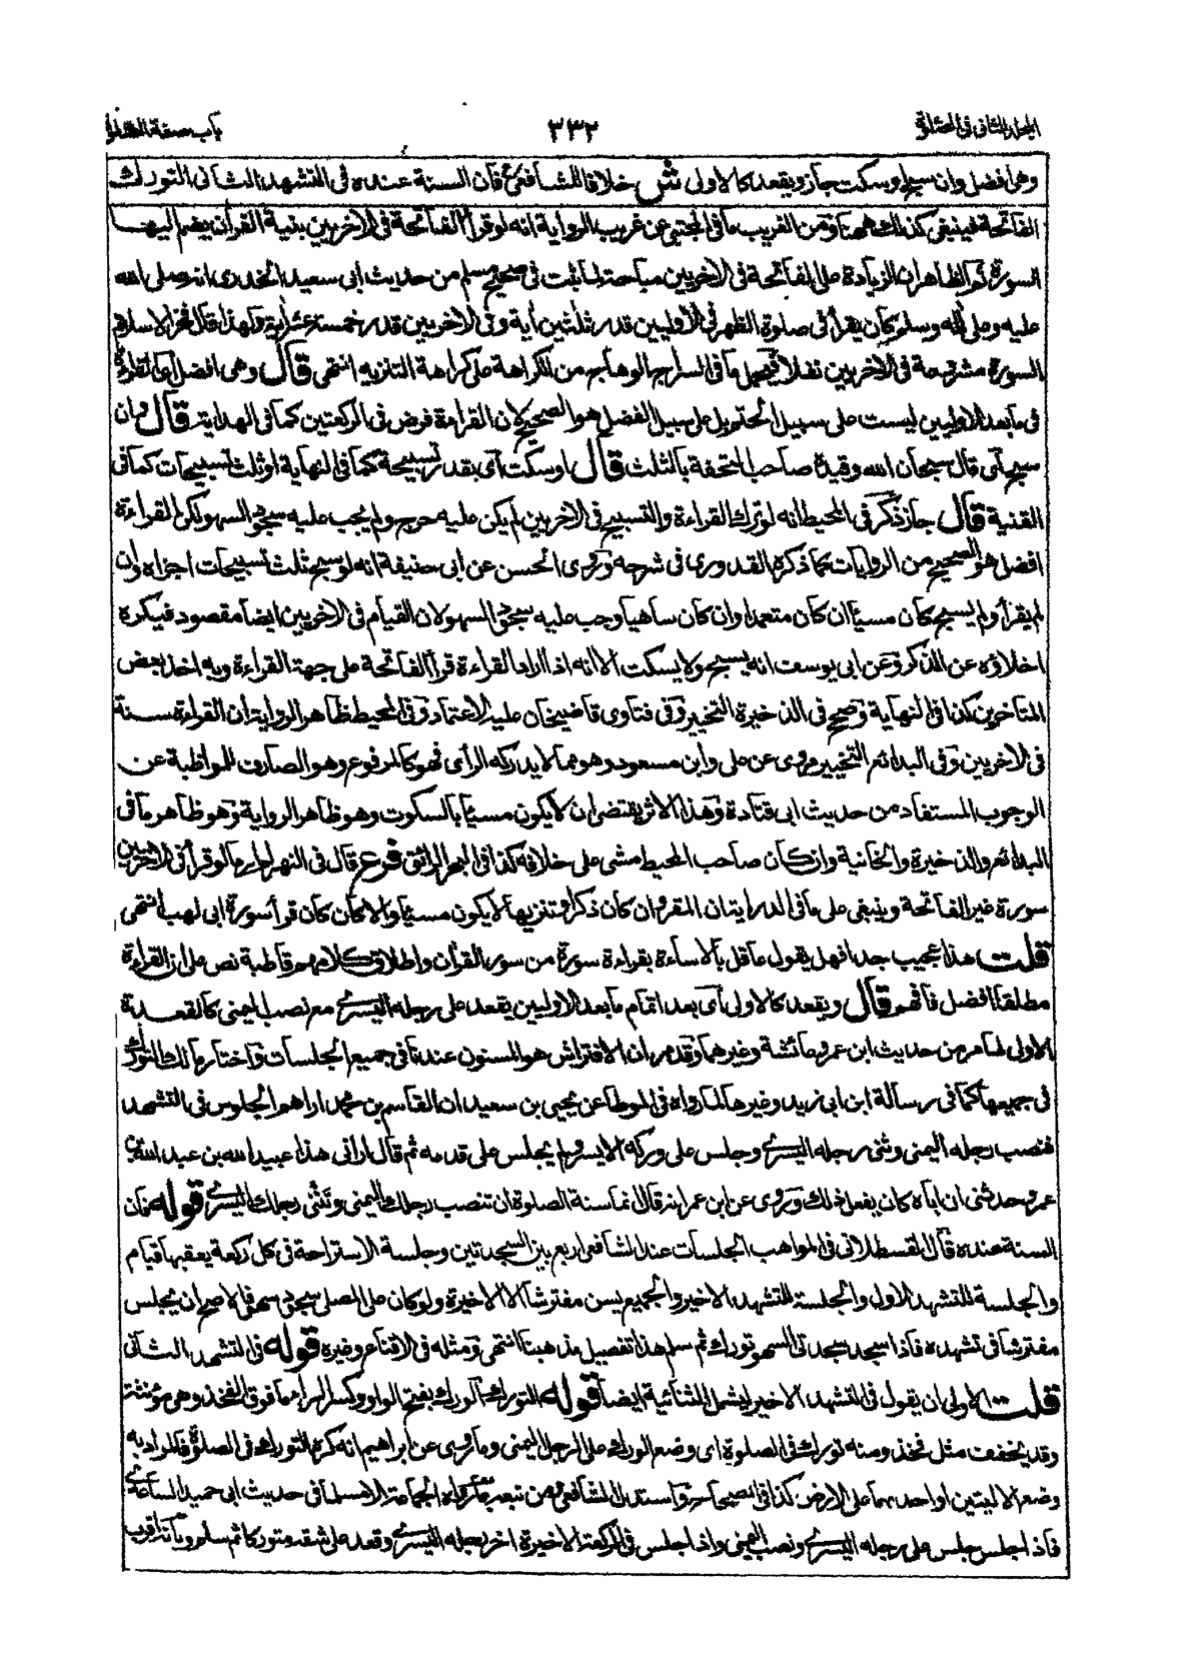 المجلد الثانى فى الصلوة ٣٣٢ باب صفة الصلوة
وهى افضل وان سبح او سكت جاز ويقعد كالاولى ش خلافا للشافعى فان السنة عنده فى التشهد الثانى التورك
الفاتحة فينبغى كذلك ههنا ومن الغريب ما فى المجتبى عن غريب الرواية انه لو قرأ الفاتحة فى الاخريين بنية القرآن يضم اليها
السورة ثم الظاهر ان الزيادة على الفاتحة فى الاخريين مباحة لما ثبت فى صحيح مسلم من حديث ابى سعيد الخدرى انه صلى الله
عليه وعلى آله وسلم كان يقرأ فى صلوة الظهر فى الأوليين قدر ثلثين آية وفى الاخريين قدر خمسة عشر آية ولهذا قال فخر الاسلام
السورة مشروعة فى الاخريين نفلا فيحمل ما فى السراج الوهاج من الكراهة على كراهة التنزيه انتهى قال وهى افضل اى القراءة
فى ما بعد الاوليين ليست على سبيل الحتم بل على سبيل الفضل هو الصحيح لان القراءة فرض فى الركعتين كما فى الهداية قال وان
سبح اى قال سبحان الله وقيده صاحب التحفة بالثلث قال او سكت اى بقدر تسبيحة كما فى النهاية او ثلث تسبيحات كما فى
القنية قال جاز ذكر فى المحيط انه لو ترك القراءة والتسبيح فى الاخريين لم يكن عليه حرج ولم يجب عليه سجود السهو لكن القراءة
افضل هو الصحيح من الروايات كما ذكره القدورى فى شرحه وروى الحسن عن ابى حنيفة انه لو سبح ثلث تسبيحات اجزاه وان
لم يقرأ ولم يسبح كان مسيئا ان كان متعمدا وان كان ساهيا وجب عليه سجود السهو لان القيام فى الاخريين ايضا مقصود فيكره
اخلاؤه عن الذكر وعن ابى يوسف انه يسبح ولا يسكت الا انه اذا اراد القراءة قرأ الفاتحة على جهة القراءة وبه اخذ بعض
المتأخرين كذا فى النهاية وصحح فى الذخيرة التخيير وفى فتاوى قاضيخان عليه الاعتماد وفى المحيط ظاهر الرواية ان القراءة سنة
فى الاخريين وفى البدائع التخيير مروى عن على وابن مسعود وهو مما لا يدركه الرأى فهو كالمرفوع وهو الصارف للمواظبة عن
الوجوب المستفاد من حديث ابى قتادة وهذا الاثر يقتضى ان لا يكون مسيئا بالسكوت وهو ظاهر الرواية وهو ظاهر ما فى
البدائع والذخيرة والخانية وان كان صاحب المحيط مشى على خلافه كذا فى البحر الرائق فرع قال فى النهر لم ار ما لو قرأ فى الاخريين
سورة غير الفاتحة وينبغى على ما فى الدراية ان المقروء ان كان ذكرا وتنزيها لا يكون مسيئا والا كان كأن قرأ سورة ابى لهب انتهى
قلت هذا عجيب جدا فهل يقول عاقل بالاساءة بقراءة سورة من سور القرآن واطلاق كلامهم قاطبة نص على ان القراءة
مطلقا افضل فافهم قال ويقعد كالاولى اى بعد اتمام ما بعد الاوليين يقعد على رجله اليسرى مع نصب اليمنى كالقعدة
الاولى لما مر من حديث ابن عمر وعائشة وغيرهما وقد مر ان الافتراش هو المسنون عندنا فى جميع الجلسات واختار مالك التورك
فى جميعها كما فى رسالة ابن ابى زيد وغيرها لما رواه فى الموطا عن يحيى بن سعيد ان القاسم بن محمد اراهم الجلوس فى التشهد
فنصب رجله اليمنى وثنى رجله اليسرى وجلس على وركه الايسر ولم يجلس على قدمه ثم قال ارانى هذا عبيد الله بن عبد الله بن
عمر وحدثنى ان اباه كان يفعل ذلك وروى عن ابن عمر انه قال انما سنة الصلوة ان تنصب رجلك اليمنى وتثنى رجلك اليسرى قوله فان
السنة عنده قال القسطلانى فى المواهب الجلسات عند الشافعى اربع بين السجدتين وجلسة الاستراحة فى كل ركعة يعقبها قيام
والجلسة للتشهد الاول والجلسة للتشهد الاخير والجميع يسن مفترشا الا الاخيرة ولو كان على المصلى سجود سهو فالاصح ان يجلس
مفترشا فى تشهده فاذا سجد سجدتى السهو تورك ثم سلم هذا تفصيل مذهبنا انتهى ومثله فى الاقناع وغيره قوله فى التشهد الثانى
قلت الاولى ان يقول فى التشهد الاخير ليشمل الثنائية ايضا قوله التورك الورك بفتح الواو وكسر الراء ما فوق الفخذ وهى مؤنثة
وقد يخفف مثل فخذ ومنه تورك فى الصلوة اى وضع الورك على الرجل اليمنى وما روى عن ابراهيم انه كره التورك فى الصلوة فالمراد به
وضع الاليتين او احدهما على الارض كذا فى الصحاح واستدل الشافعى ومن تبعه بما رواه الجماعة الا مسلما فى حديث ابى حميد الساعدى
فاذا جلس جلس على رجله اليسرى ونصب اليمنى واذا جلس فى الركعة الاخيرة اخر رجله اليسرى وقعد على شقه متوركا ثم سلم